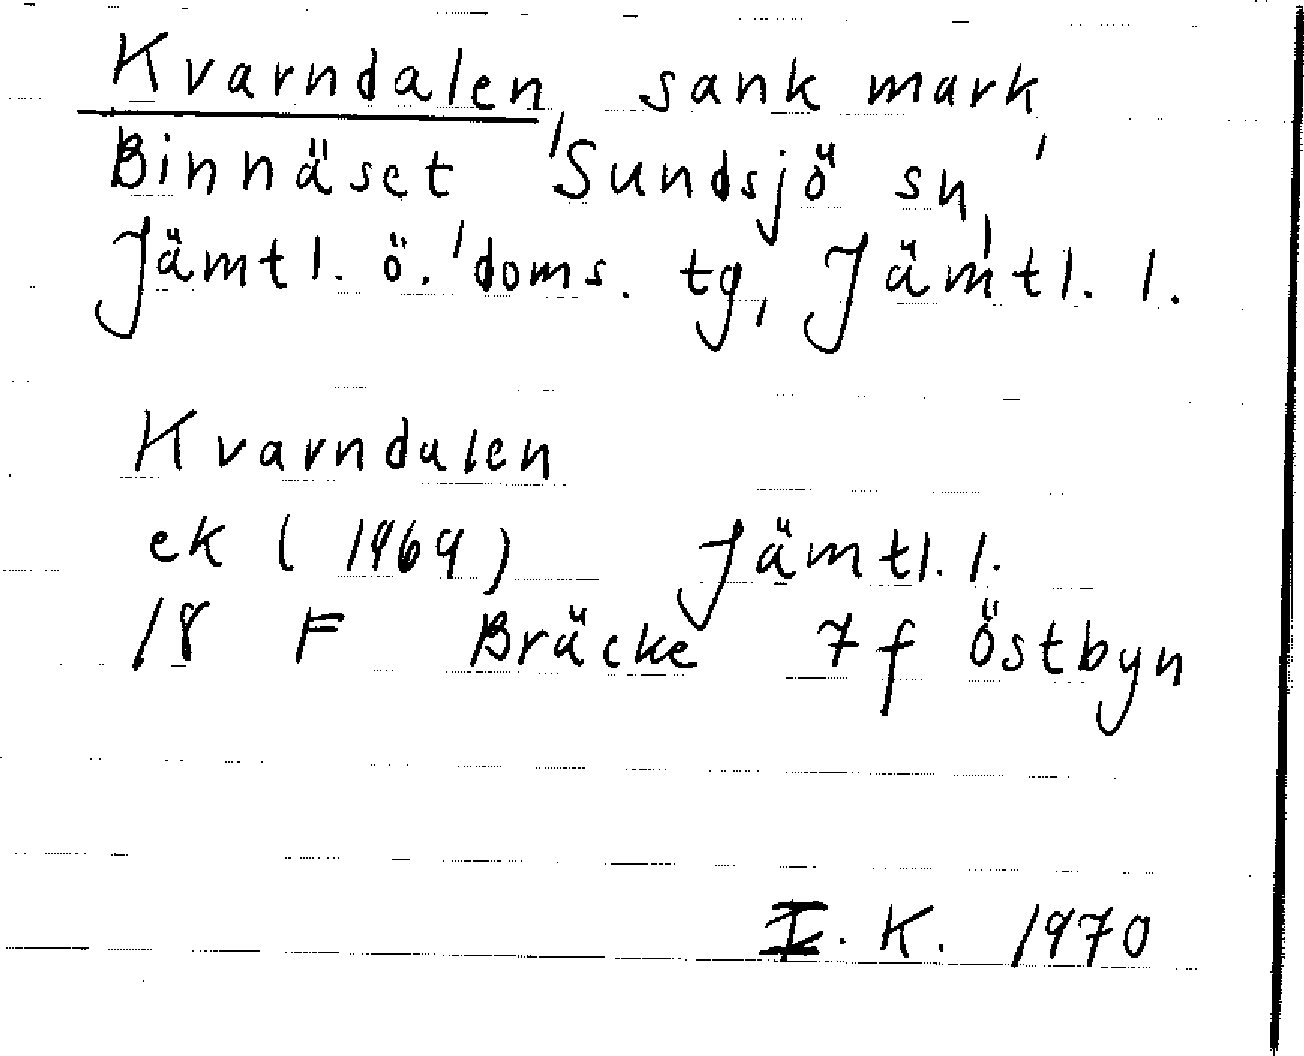 Kvarndalen, sank mark,
Binnäset, Sundsjö sn,
Jämtl. ö. doms. tg, Jämtl. l.
Kvarndalen
ek (1969) Jämtl. l.
18 F Bräcke 7f Östbyn
I. K. 1970